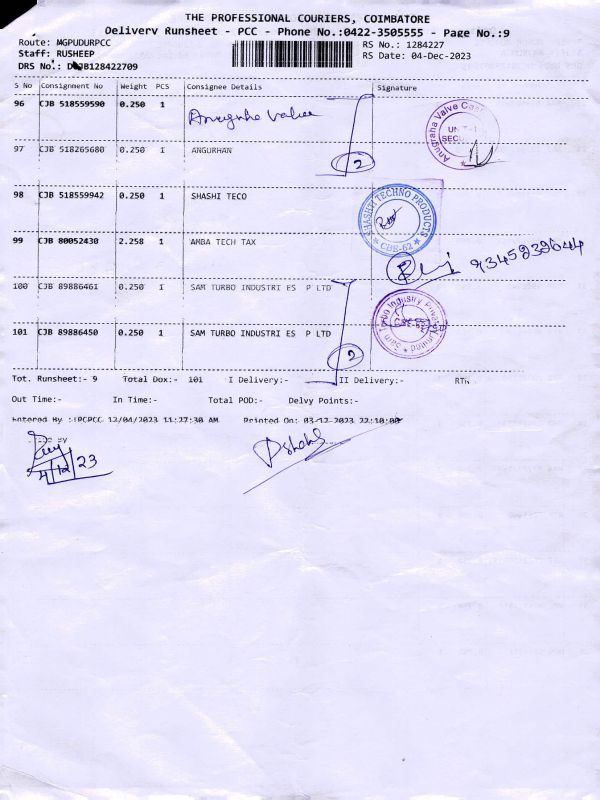 THE PROFESSIONAL COURIERS, COIMBATORE
Delivery Runsheet - PCC - Phone No.:0422-3505555 - Page No.:9
Route: MGPUDURPCC RS No.: 1284227
Staff: RUSHEEP RS Date: 04-Dec-2023
DRS No.: 128422709
S No Consignment No Weight PCS Consignee Details Signature
96 CJB 518559590 0.250 1 Anugraha Valve
97 CJB 518265680 0.250 1 ANGURHAN
2
Anugraha Valve
UNIT-1
98 CJB 518559942 0.250 1 SHASHI TECO
SHASHTI TECHNO PRODUCTS
★ CBE-62 ★
99 CJB 80052430 2.258 1 AMBA TECH TAX
100 CJB 89886461 0.250 1 SAM TURBO INDUSTRI ES P LTD
101 CJB 89886450 0.250 1 SAM TURBO INDUSTRI ES P LTD
2
Sam Turbo Industry Private Limited
Tot. Runsheet:- 9 Total Dox:- 101 I Delivery:- II Delivery:-
Out Time:- In Time:- Total POD:- Delvy Points:-
Entered By : 12/04/2023 11:27:30 AM Printed On: 03-12-2023 22:10:00
4/12/23